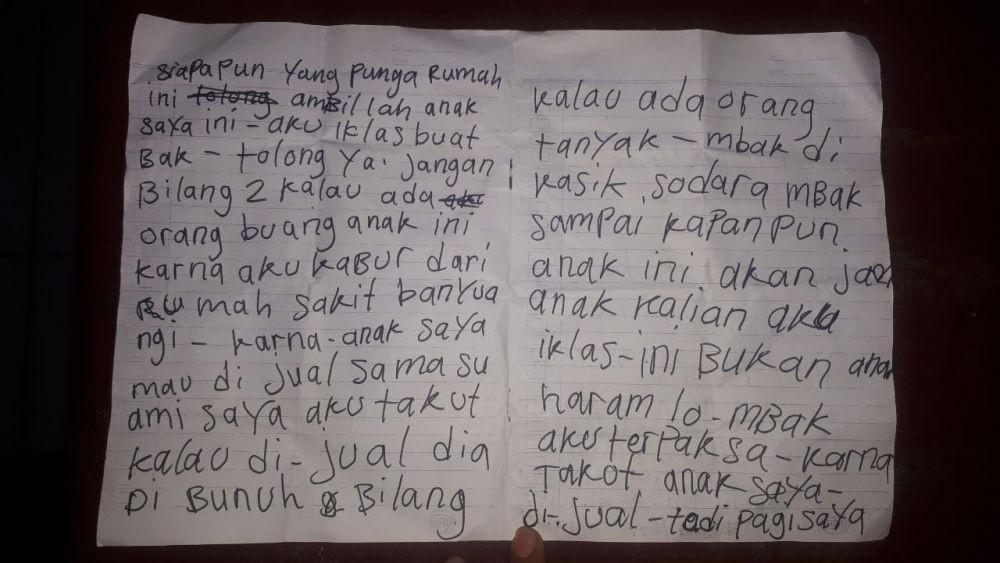 siapapun yang punga Rumah
ini tolong ambillah anak
saya ini - aku iklas buat
Bak - tolong ya. jangan
Bilang 2 kalau ada
orang buang anak ini
karna aku kabur dari
Rumah sakit banyua
ngi - karna - anak saya
mau di jual sama su
ami saya aku takut
kalau di - jual dia
Di Bunuh Bilang
kalau ada orang
tanyak - mbak di
kasik sodara mBak
sampai kapanpun.
anak ini akan jadi
anak kalian aku
iklas - ini Bukan anak
haram lo - mBak
aku terpaksa - karna
Takot anak saya -
di - jual - tadi pagi saya